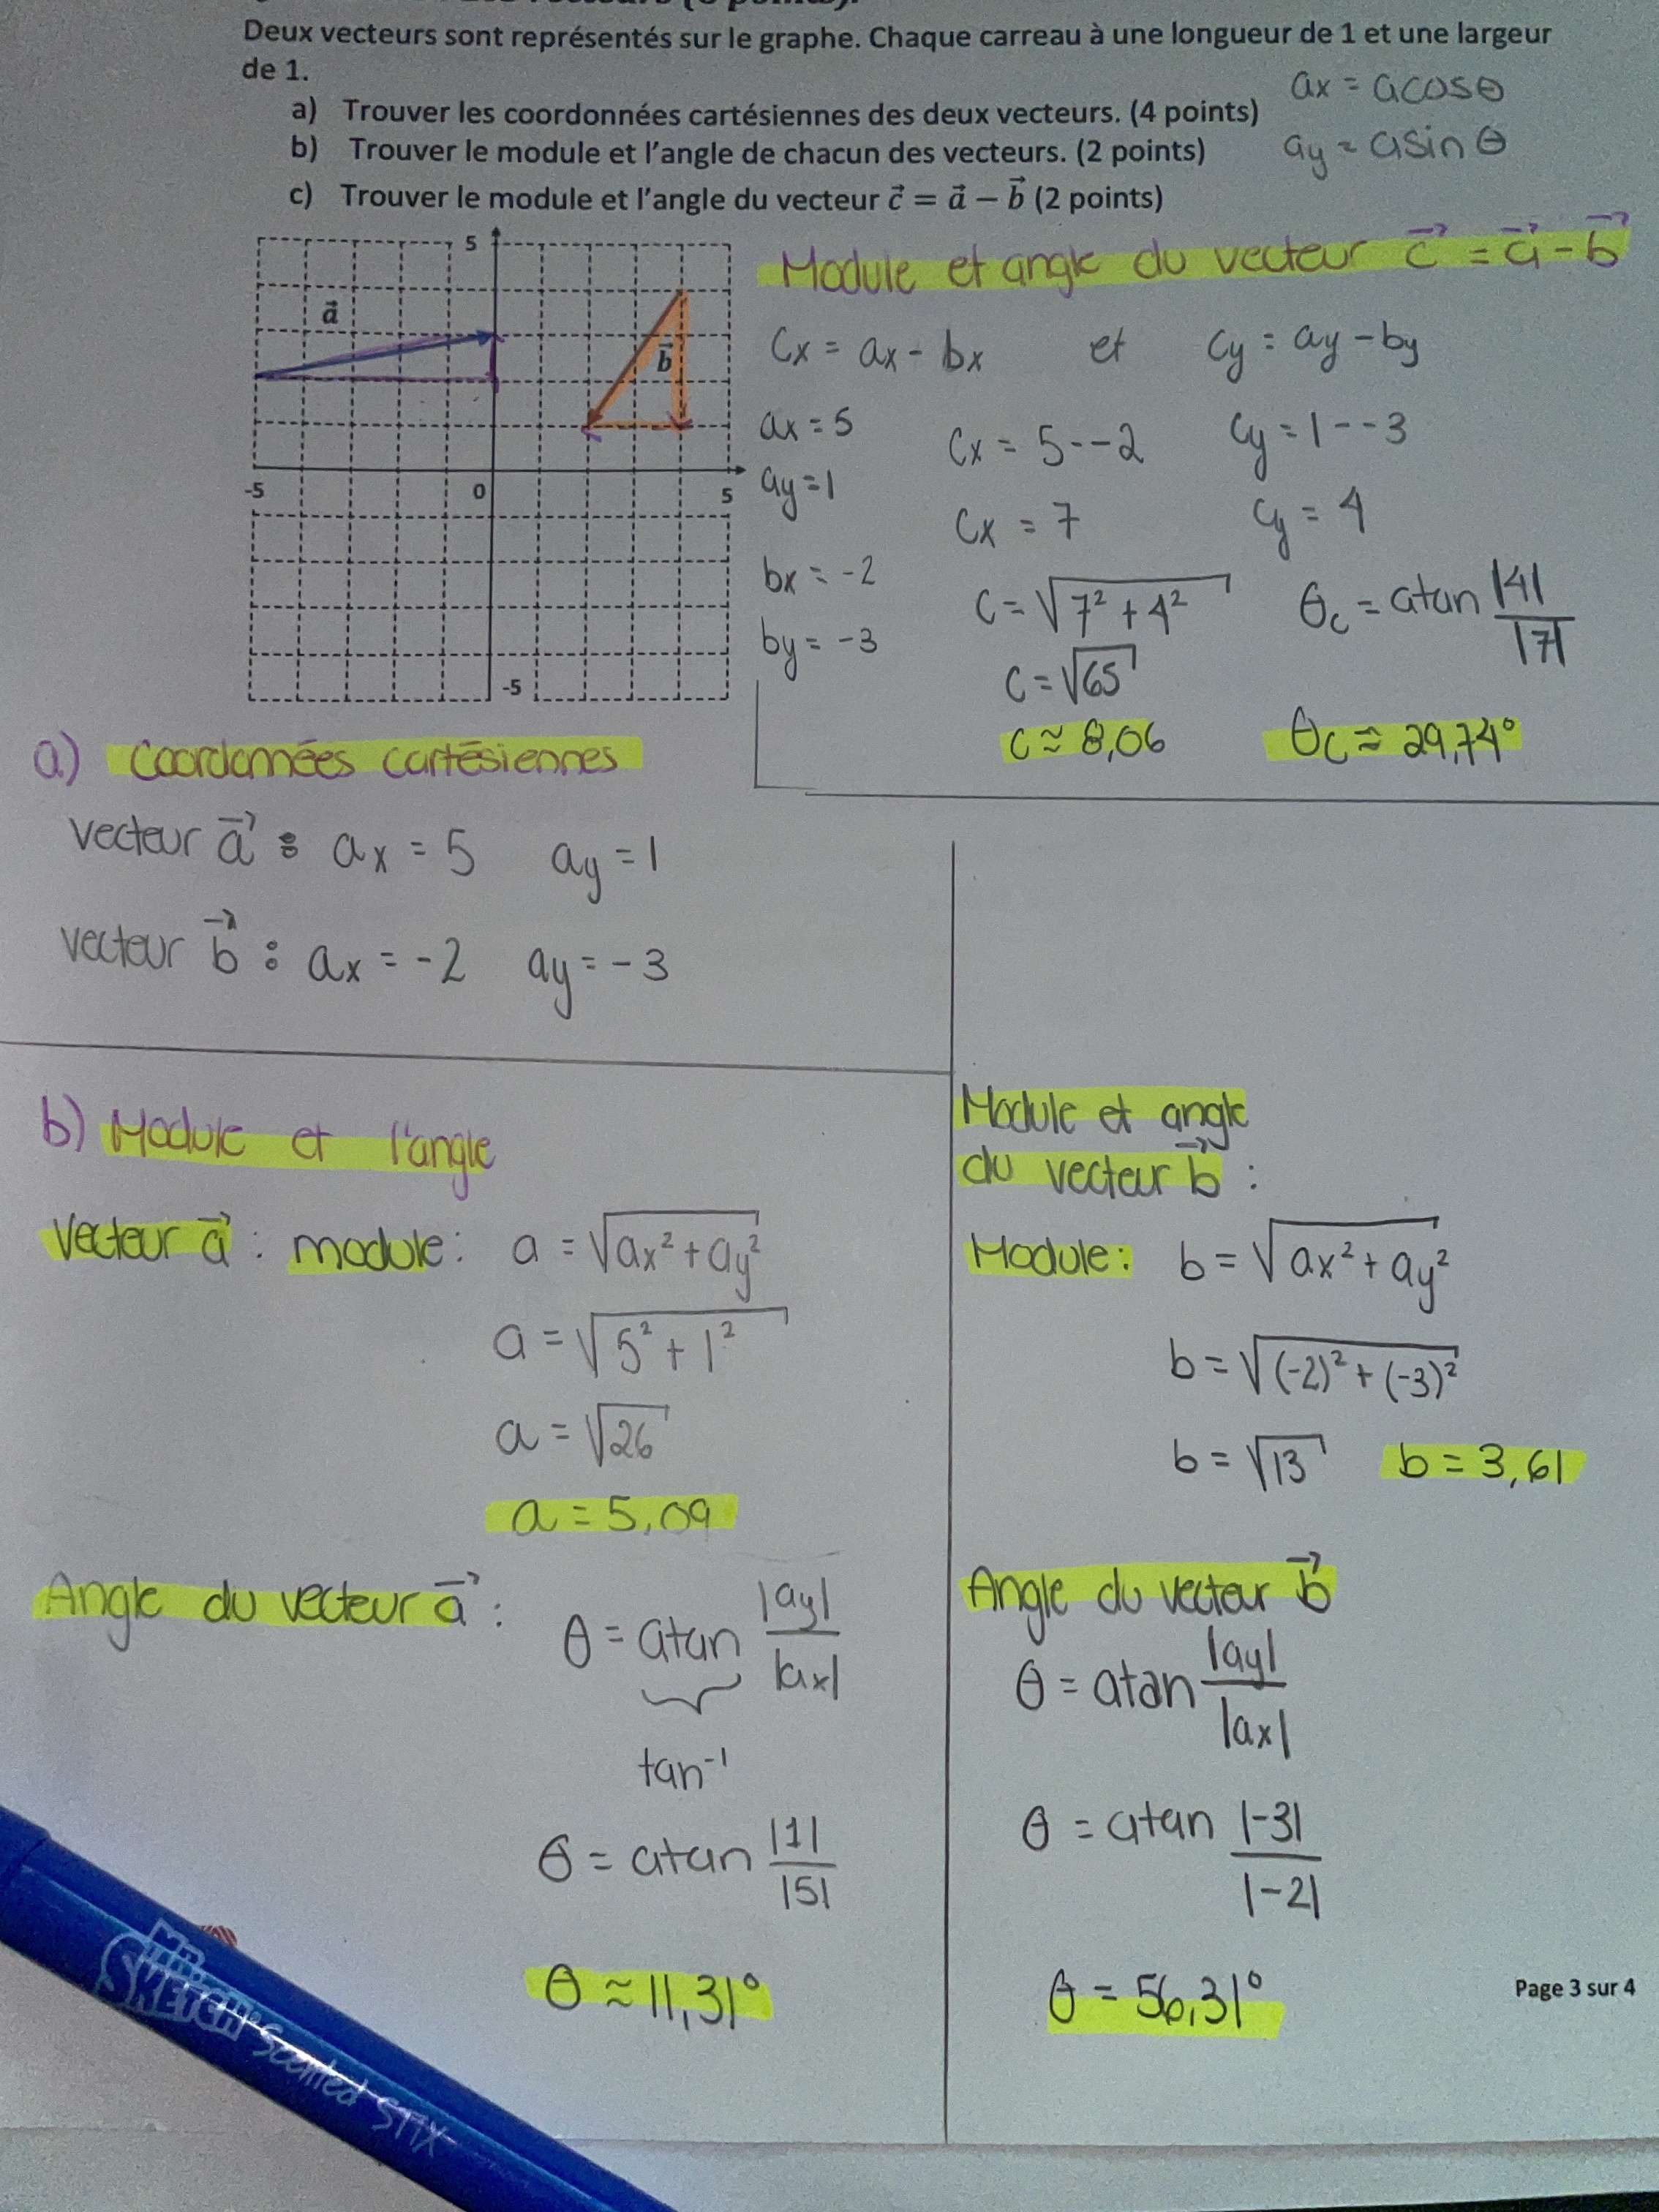 Deux vecteurs sont représentés sur le graphe. Chaque carreau à une longueur de 1 et une largeur
de 1.
a) Trouver les coordonnées cartésiennes des deux vecteurs. (4 points)
b) Trouver le module et l'angle de chacun des vecteurs. (2 points)
c) Trouver le module et l'angle du vecteur c⃗ = a⃗ − b⃗ (2 points)
ax = acosθ
ay = asinθ
5
a⃗
b⃗
-5 0 5
-5
Module et angle du vecteur c⃗ = a⃗ - b⃗
Cx = ax - bx et Cy = ay - by
ax = 5
ay = 1
bx = -2
by = -3
Cx = 5--2 Cy = 1--3
Cx = 7 Cy = 4
C = √7² + 4² θc = atan |4|/|7|
C = √65
C ≈ 8,06 θc ≈ 29,74°
a) Coordonnées cartésiennes
vecteur a⃗ : ax = 5 ay = 1
vecteur b⃗ : ax = -2 ay = -3
b) Module et l'angle
Vecteur a⃗ : module : a = √ax² + ay²
a = √5² + 1²
a = √26
a = 5,09
Angle du vecteur a⃗ : θ = atan |ay|/|ax|
tan⁻¹
θ = atan |1|/|5|
θ ≈ 11,31°
Module et angle
du vecteur b⃗ :
Module : b = √ax² + ay²
b = √(-2)² + (-3)²
b = √13 b = 3,61
Angle du vecteur b⃗
θ = atan |ay|/|ax|
θ = atan |-3|/|-2|
θ = 56,31°
Page 3 sur 4
MR. SKETCH Scented STIX